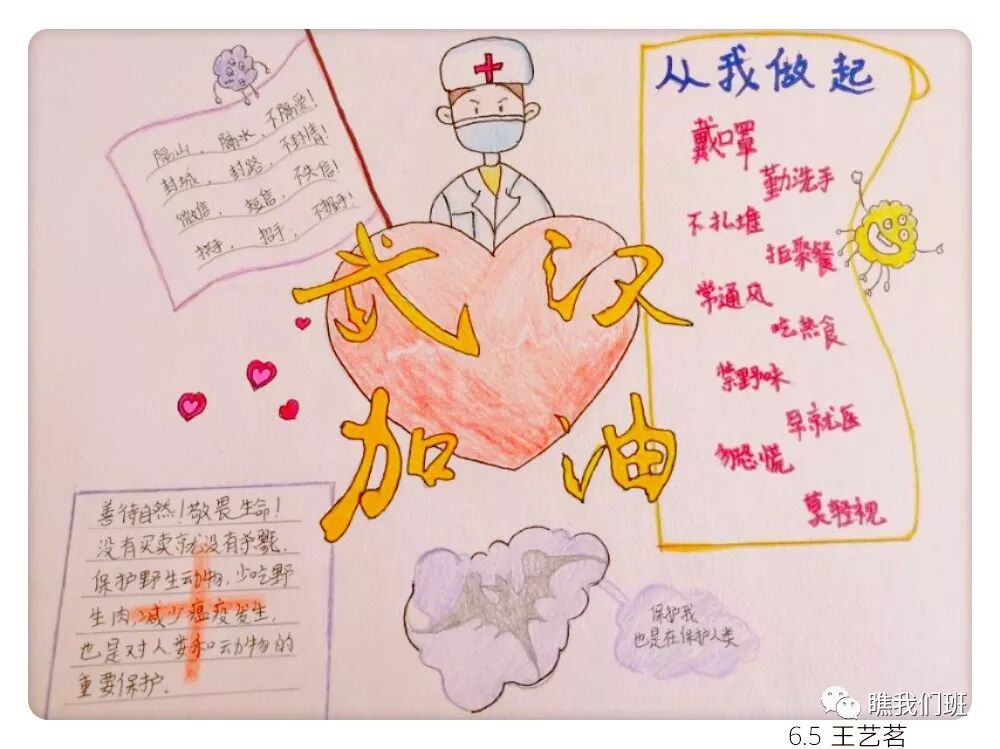 隔山，隔水，不隔爱！
封城，封路，不封情！
微信，短信，不失信！
挥手，招手，不握手！
武汉
加油
从我做起
戴口罩
勤洗手
不扎堆
拒聚餐
常通风
吃熟食
禁野味
早就医
勿恐慌
莫轻视
善待自然！敬畏生命！
没有买卖就没有杀戮.
保护野生动物，少吃野
生肉，减少瘟疫发生，
也是对人类和动物的
重要保护.
保护我
也是在保护人类
瞧我们班
6.5 王艺茗